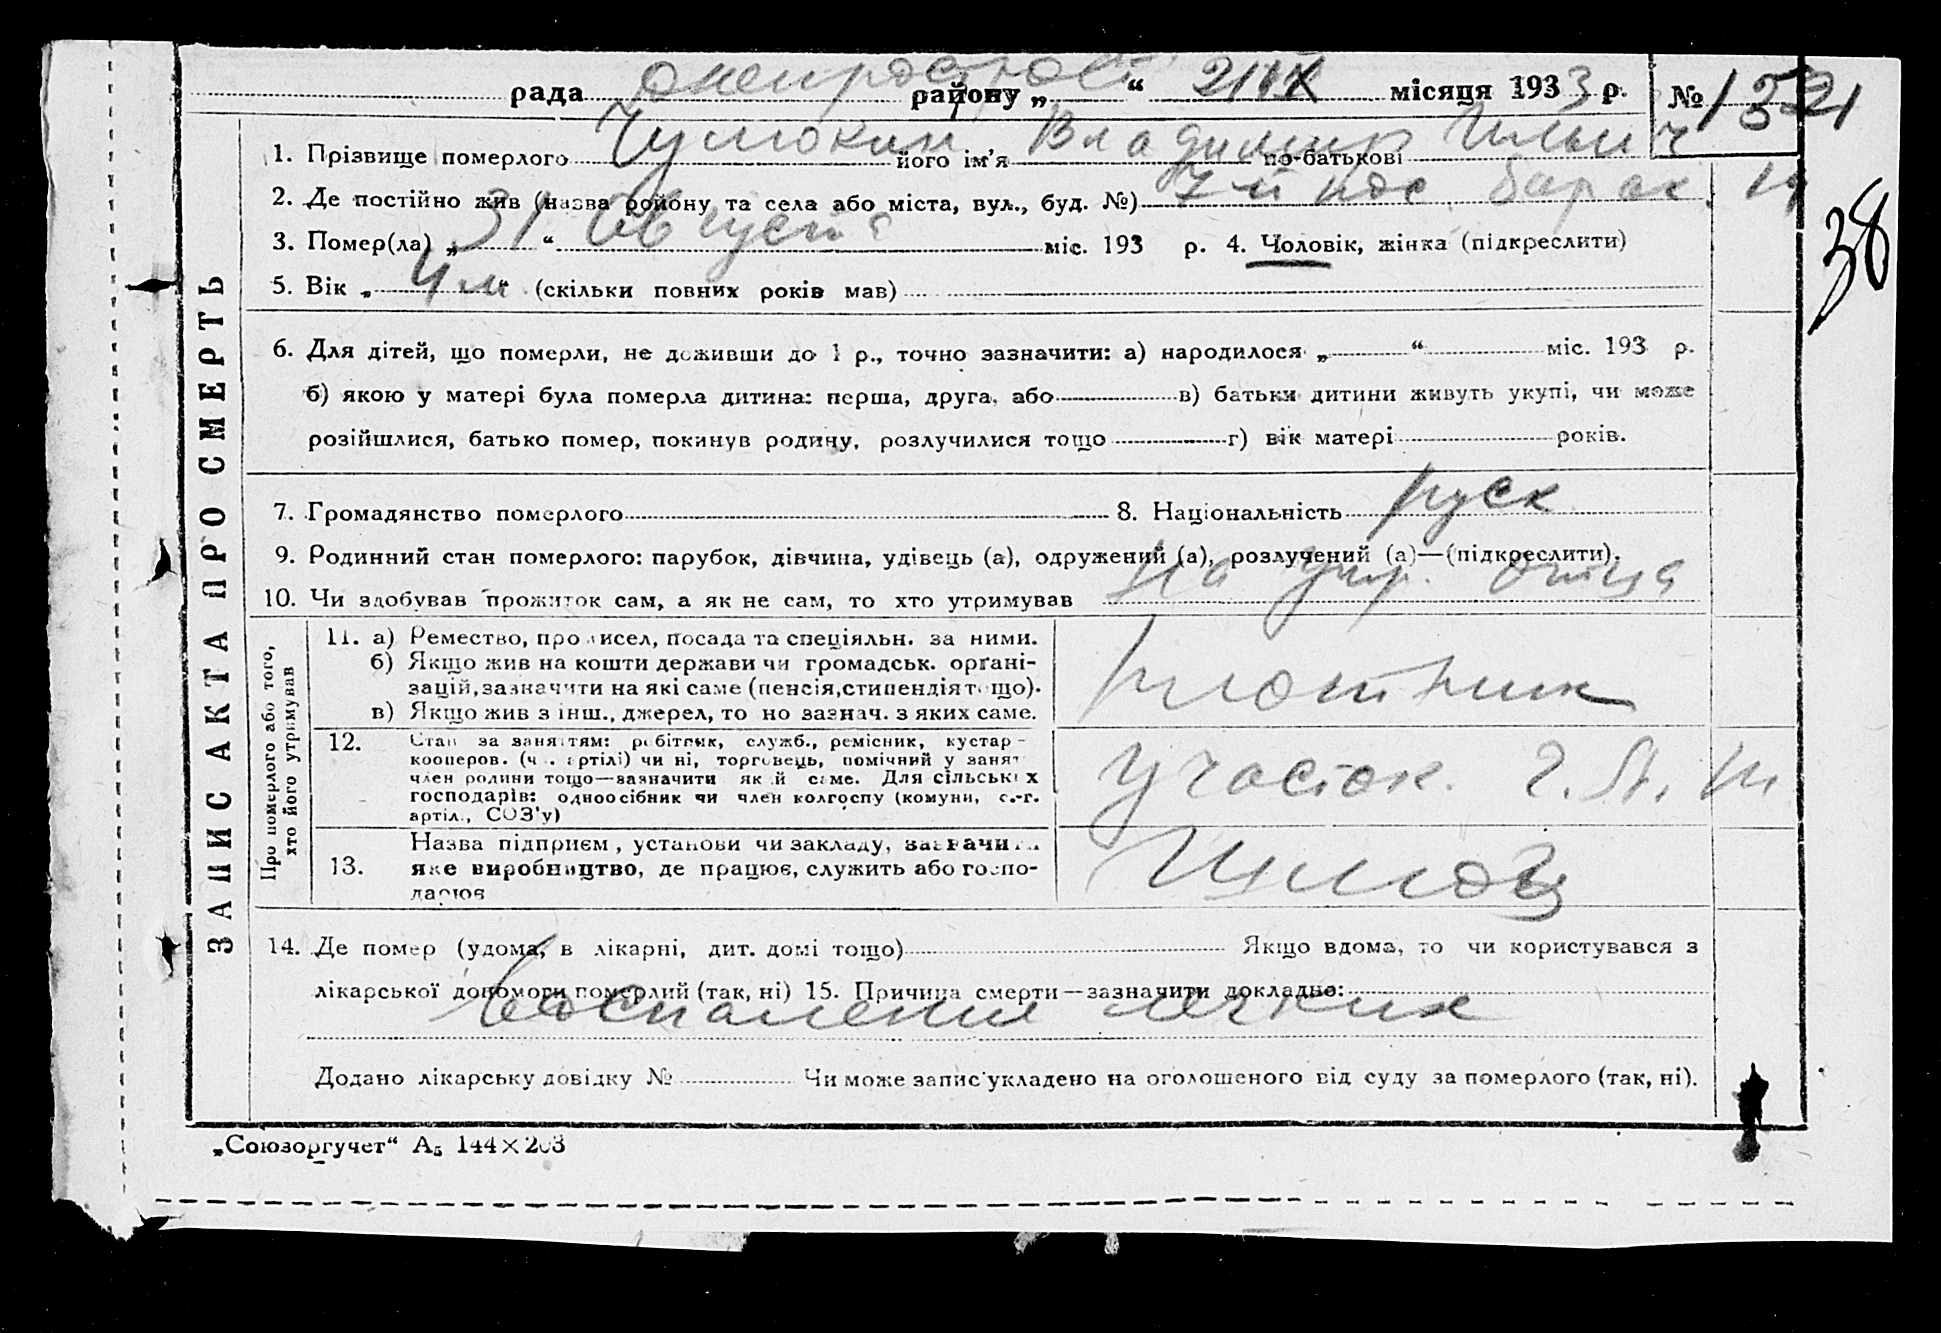 рада Днепрострой району „ “ 2/IX місяця 1933 р. № 1521
1. Прізвище померлого Чумокин його ім’я Владимир по-батькові Ильич
2. Де постійно жив (назва району та села або міста, вул., буд. №) 7й пос. барак 14
3. Помер(ла) „ 31 “ Августа міс. 193 р. 4. Чоловік, жінка (підкреслити)
38
5. Вік „ 4 м “ (скільки повних років мав)
6. Для дітей, що померли, не доживши до 1 р., точно зазначити: а) народилося „ “ міс. 193 р.
б) якою у матері була померла дитина: перша, друга, або в) батьки дитини живуть укупі, чи може
розійшлися, батько помер, покинув родину, розлучилися тощо г) вік матері років.
7. Громадянство померлого 8. Національність руск
9. Родинний стан померлого: парубок, дівчина, удівець (а), одружений (а), розлучений (а)—(підкреслити).
10. Чи здобував прожиток сам, а як не сам, то хто утримував На ижд. отца
ЗАПИС АКТА ПРО СМЕРТЬ
Про померлого або того,
хто його утримував
11. а) Ремество, промисел, посада та спеціяльн. за ними.
б) Якщо жив на кошти держави чи громадськ. орґані-
зацій, зазначити на які саме (пенсія, стипендія тощо).
в) Якщо жив з інш., джерел, то но зазнач. з яких саме.
плотник
12. Стан за заняттям: робітник, служб., ремісник, кустар-
кооперов. (чл. артілі) чи ні, торговець, помічний у занят
член родини тощо—зазначити який саме. Для сільських
господарів: одноосібник чи член колгоспу (комуни, с.-г.
артіл., СОЗ’у)
Участок
13. Назва підприєм., установи чи закладу, зазначити
яке виробництво, де працює, служить або госпо-
дарює
Шлюз
14. Де помер (удома, в лікарні, дит. домі тощо) Якщо вдома, то чи користувався з
лікарської допомоги померлий (так, ні) 15. Причина смерти—зазначити докладно:
Воспаление легких
Додано лікарську довідку № Чи може запис укладено на оголошеного від суду за померлого (так, ні).
„Союзоргучет“ А₅ 144×203